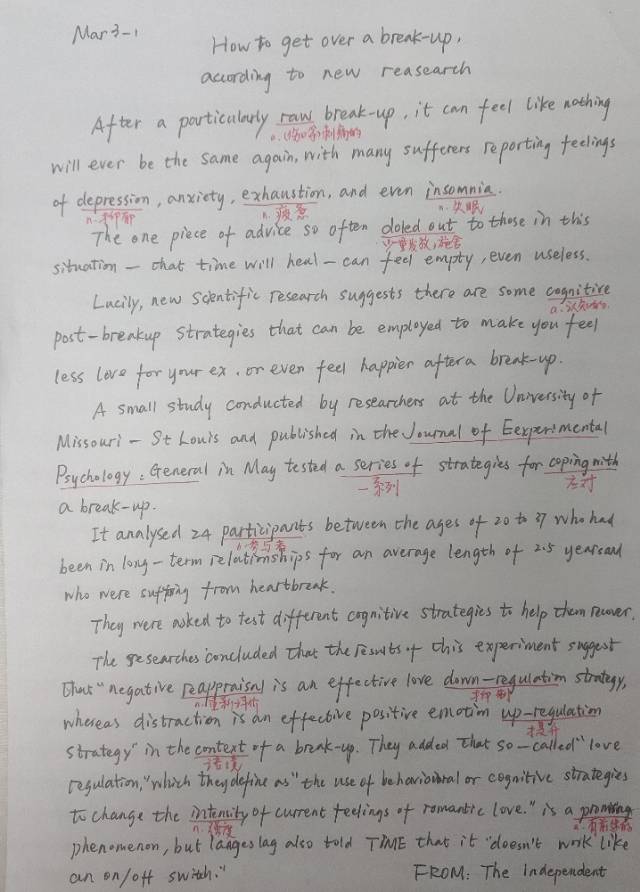 Mar 3-1
How to get over a break-up,
acording to new reasearch
After a particularly raw break-up, it can feel like nothing
a. (伤口等)刺痛的
will ever be the same again, with many sufferers reporting feelings
of depression, anxiety, exhaustion, and even insomnia.
n. 抑郁 n. 疲惫 n. 失眠
The one piece of advice so often doled out to those in this
少量发放,施舍
situation — that time will heal — can feel empty, even useless.
Lucily, new scientific research suggests there are some cognitive
a. 认知的.
post-breakup strategies that can be employed to make you feel
less love for your ex, or even feel happier after a break-up.
A small study conducted by researchers at the University of
Missouri - St Louis and published in the Journal of Eexperimental
Psychology: General in May tested a series of strategies for coping with
一系列 应对
a break-up.
It analysed 24 participants between the ages of 20 to 37 who had
n. 参与者
been in long-term relationships for an average length of 2.5 years and
who were suffring from heartbreak.
They were asked to test different cognitive strategies to help them recover.
The researches concluded that the results of this experiment suggest
that "negative reappraisal is an effective love down-regulation strategy,
n. 重新评估 抑制
whereas distraction is an effective positive emotion up-regulation
提升
strategy" in the context of a break-up. They added that so-called "love
语境
regulation," which they define as "the use of behavioral or cognitive strategies
to change the intensity of current feelings of romantic love." is a promising
n. 强度 a. 有前途的
phenomenon, but langeslag also told TIME that it "doesn't work like
an on/off switch."
FROM: The Independent